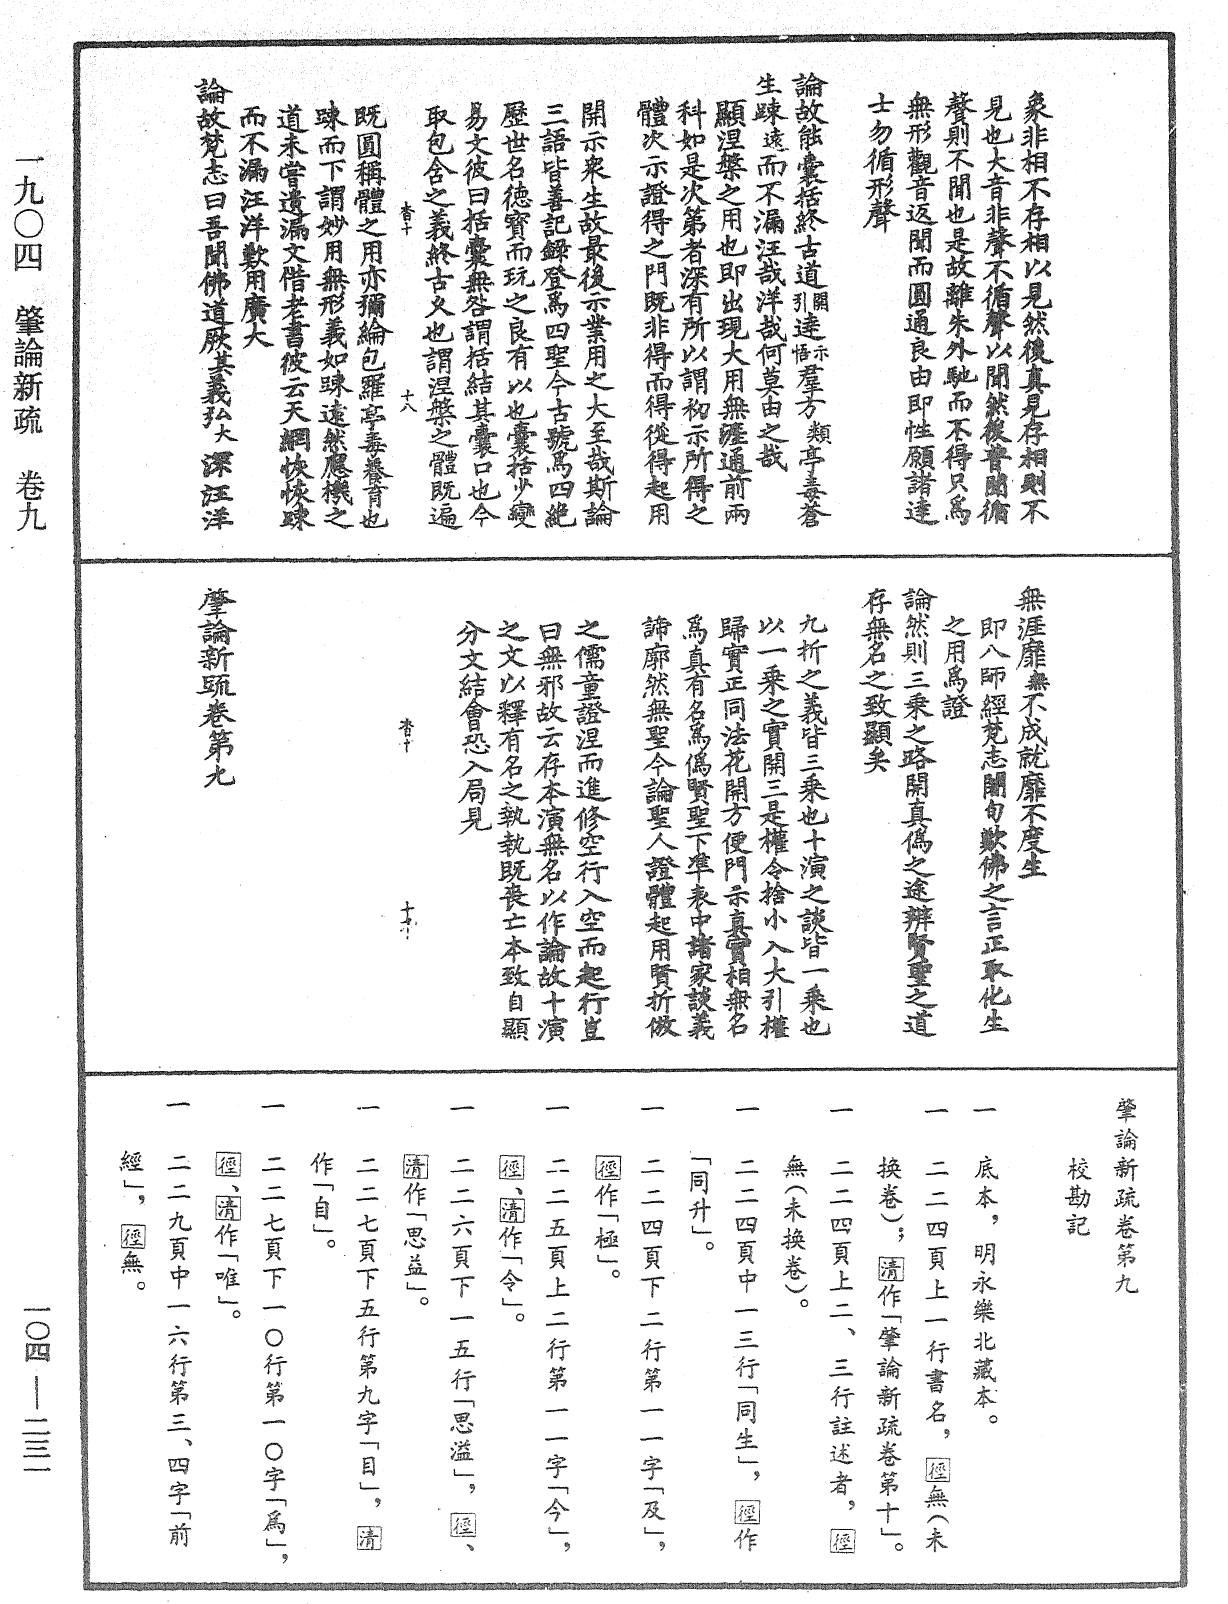 一九〇四　肇論新疏　卷九
象非相不存相以見然後真見存相則不
見也大音非聲不循聲以聞然後普聞循
聲則不聞也是故離朱外馳而不得只爲
無形觀音返聞而圓通良由即性願諸達
士勿循形聲
論故能囊括終古道引開達悟示羣方類亭毒蒼
生踈遠而不漏汪哉洋哉何莫由之哉
顯涅槃之用也即出現大用無涯通前兩
科如是次第者深有所以謂初示所得之
體次示證得之門既非得而得從得起用
開示衆生故最後示業用之大至哉斯論
三語皆善記錄登爲四聖今古號爲四絶
歷世名德寶而玩之良有以也囊括少變
易文彼曰括囊無咎謂括結其囊口也今
取包含之義終古久也謂涅槃之體既遍
杳十　十八
既圓稱體之用亦彌綸包羅亭毒養育也
踈而下謂妙用無形義如踈遠然應機之
道未嘗遺漏文借老書彼云天網恢恢踈
而不漏汪洋歎用廣大
論故梵志曰吾聞佛道厥其義弘大深汪洋
無涯靡無不成就靡不度生
即八師經梵志聞句歎佛之言正取化生
之用爲證
論然則三乘之路開真僞之途辨賢聖之道
存無名之致顯矣
九折之義皆三乘也十演之談皆一乘也
以一乘之實開三是權令捨小入大引權
歸實正同法花開方便門示真實相無名
爲真有名爲僞賢聖下準表中諸家談義
諦廓然無聖今論聖人證體起用賢折倣
之儒童證涅而進修空行入空而起行豈
曰無邪故云存本演無名以作論故十演
之文以釋有名之執執既喪亡本致自顯
分文結會恐入局見
杳十　十九
肇論新疏卷第九
肇論新疏卷第九
校勘記
一　底本，明永樂北藏本。
一　二二四頁上一行書名，徑無（未
換卷）；清作「肇論新疏卷第十」。
一　二二四頁上二、三行註述者，徑
無（未換卷）。
一　二二四頁中一三行「同生」，徑作
「同升」。
一　二二四頁下二行第一一字「及」，
徑作「極」。
一　二二五頁上二行第一一字「今」，
徑、清作「令」。
一　二二六頁下一五行「思溢」，徑、
清作「思益」。
一　二二七頁下五行第九字「目」，清
作「自」。
一　二二七頁下一〇行第一〇字「爲」，
徑、清作「唯」。
一　二二九頁中一六行第三、四字「前
經」，徑無。
一〇四—二三一